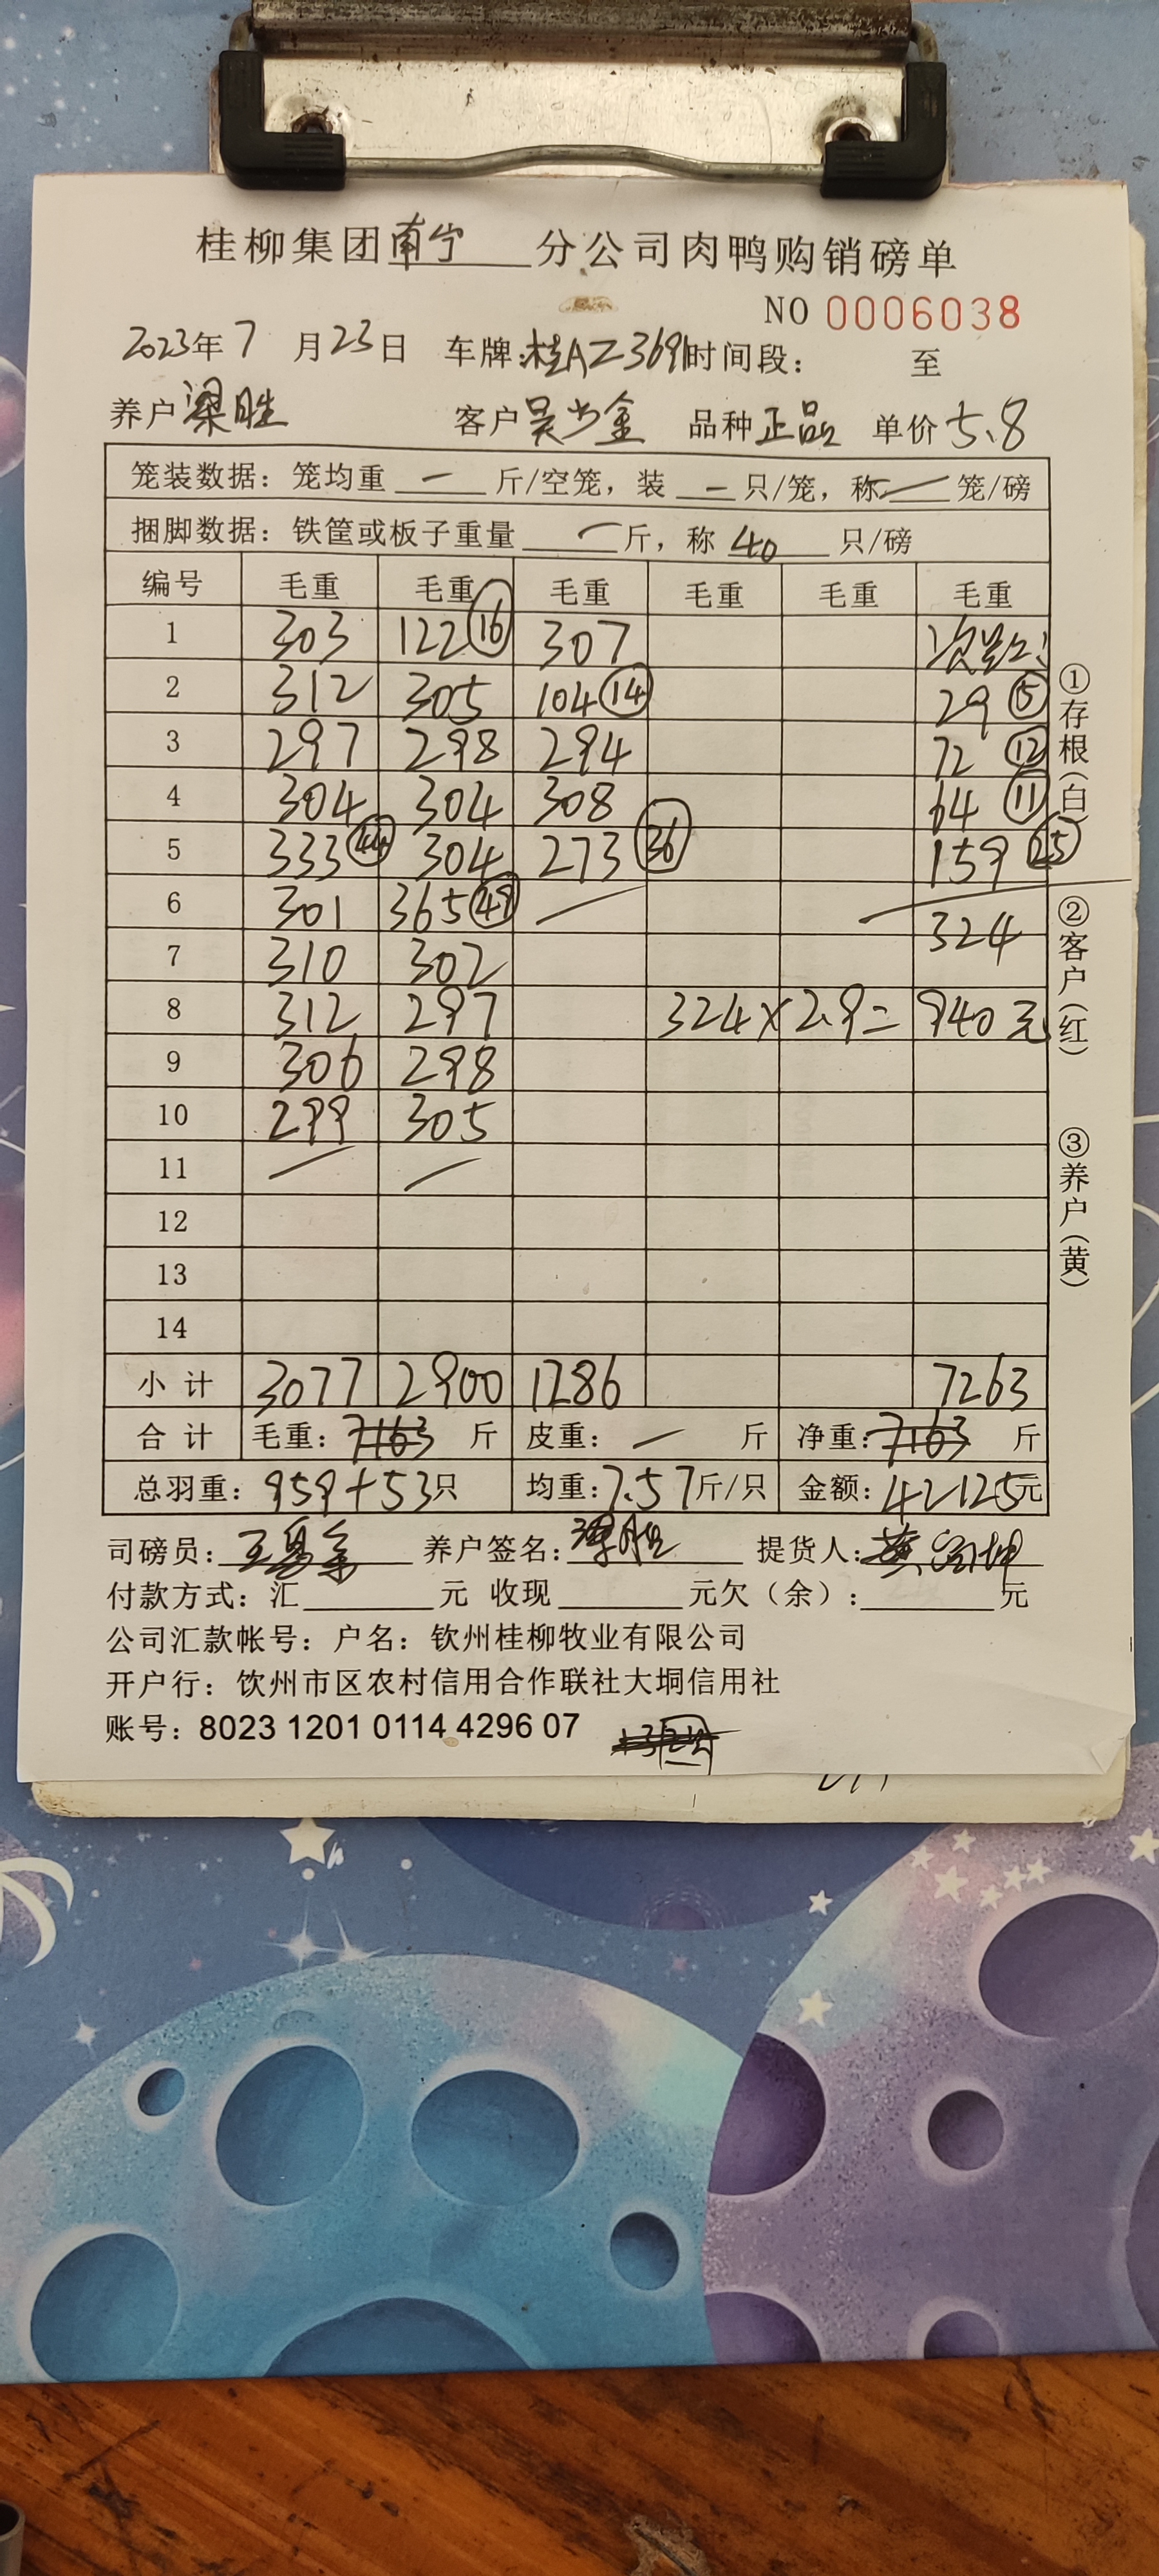 桂柳集团南宁 分公司肉鸭购销磅单
NO 0006038
2023年 7 月 23日 车牌:桂AZ3691 时间段: 至
养户 梁胜 客户 吴少金 品种 正品 单价 5.8
笼装数据: 笼均重 一 斤/空笼, 装 一 只/笼, 称 一 笼/磅
捆脚数据: 铁筐或板子重量 一 斤, 称 40 只/磅
编号 毛重 毛重 毛重 毛重 毛重 毛重
1 303 122 16 307 次品:
2 312 305 104 14 29 5
3 297 298 294 72 12
4 304 304 308 64 11
5 333 44 304 273 36 159 25
6 301 365 49 324
7 310 302
8 312 297 324×2.9= 940元
9 306 298
10 299 305
11
12
13
14
小计 3077 2900 1286 7263
合计 毛重: 7163 斤 皮重: 一 斤 净重: 7163 斤
总羽重: 959+53只 均重: 7.57斤/只 金额: 42125元
司磅员: 养户签名: 提货人:
付款方式: 汇 元 收现 元欠(余): 元
公司汇款帐号: 户名: 钦州桂柳牧业有限公司
开户行: 饮州市区农村信用合作联社大垌信用社
账号: 8023 1201 0114 4296 07
①存根(白)
②客户(红)
③养户(黄)